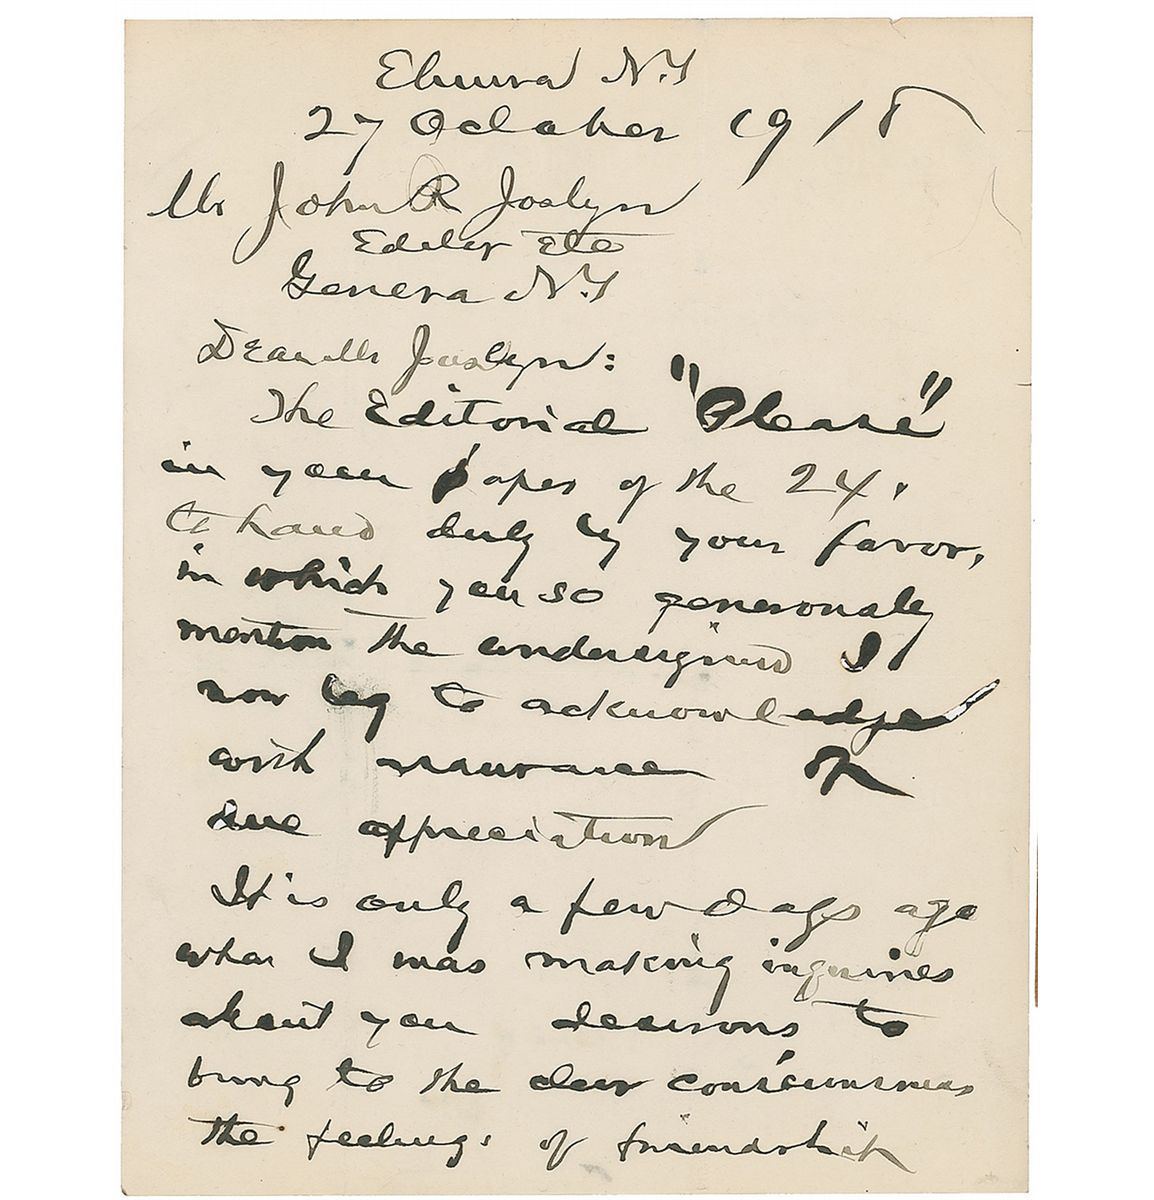 Elmira N.Y
27 October 1918
Mr John R Joslyn
Editor Etc
Geneva N.Y
Dear Mr Joslyn:
The Editorial "Please"
in your paper of the 24.
to hand duly by your favor,
in which you so generously
mention the undersigned I
now beg to acknowledge
with assurance of
due appreciation
It is only a few days ago
when I was making inquiries
about you desirous to
bring to the clear consciousness
the feelings of friendship